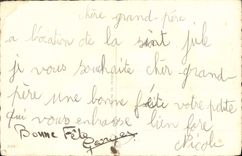 chère grand-père
a l'ocation de la sint jule
je vous souhaite chèr grand-
père une bonne fête votre petite
qui vous enbrasse bien fore
Bonne Fête Georges Nicole